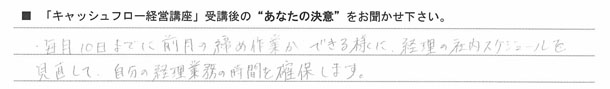 ■ 「キャッシュフロー経営講座」受講後の“あなたの決意”をお聞かせ下さい。
・毎月10日までに前月の締め作業ができる様に、経理の社内スケジュールを
見直して、自分の経理業務の時間を確保します。